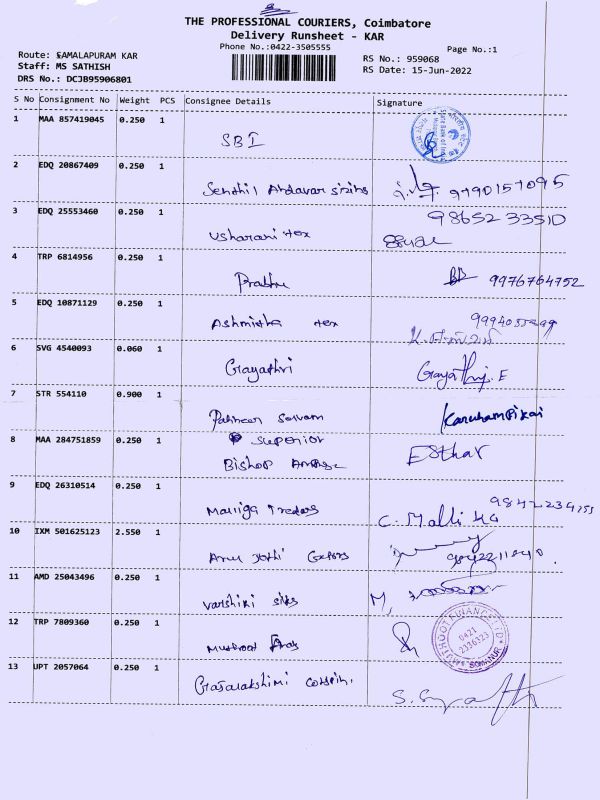 THE PROFESSIONAL COURIERS, Coimbatore
Delivery Runsheet - KAR
Phone No.:0422-3505555
Page No.:1
Route: SAMALAPURAM KAR
Staff: MS SATHISH
DRS No.: DCJB95906801
RS No.: 959068
RS Date: 15-Jun-2022
S No Consignment No Weight PCS Consignee Details Signature
1 MAA 857419045 0.250 1 SBI
State Bank of India
2 EDQ 20867409 0.250 1 Senthil Andavar sizing 9790157095
3 EDQ 25553460 0.250 1 Usharani tex 9865233510
4 TRP 6814956 0.250 1 Prabhu 9976764752
5 EDQ 10871129 0.250 1 Ashmitha tex
6 SVG 4540093 0.060 1 Gayathri Gayathri. E
7 STR 554110 0.900 1 Panneer Selvam Karuhampikai
8 MAA 284751859 0.250 1 Superior
Bishop Esthar
9 EDQ 26310514 0.250 1 Malliga Traders C. Malliga
10 IXM 501625123 2.550 1 Arul Jothi
11 AMD 25043496 0.250 1 Varshini silks M,
12 TRP 7809360 0.250 1 Muthoot
MUTHOOT FINANCE LTD
0421
2336323
SOMANUR
13 UPT 2057064 0.250 1 Gajalakshmi